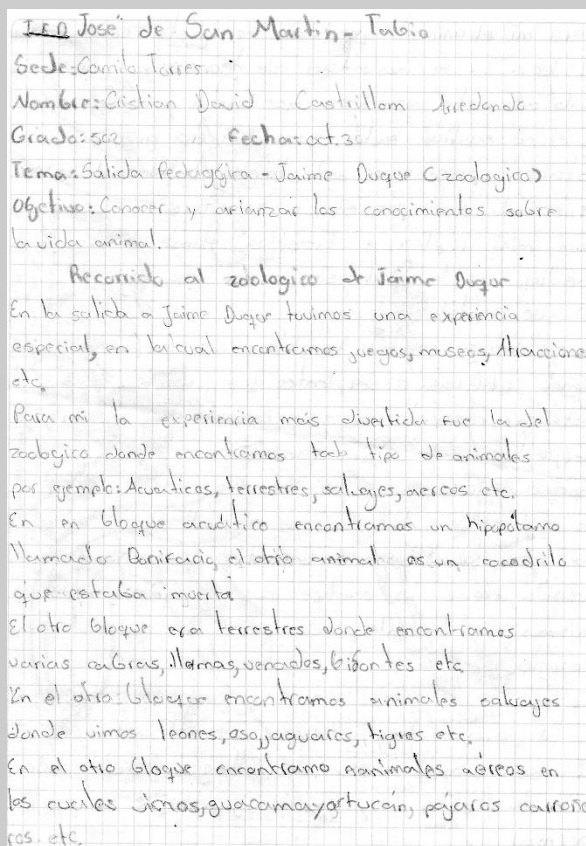 I.E.D José de San Martin - Tabio
Sede: Camilo Torres
Nombre: Cristian David Castrillom Arredondo
Grado: 502 Fecha: oct. 3
Tema: Salida Pedagógira - Jaime Duque (zoologico)
Objetivo: Conocer y afianzar los conocimientos sobre
la vida animal.
Recorrido al zoologico de Jaime Duque
En la salida a Jaime Duque tuvimos una experiencia
especial, en la cual encontramos juegos, museos, Atraccione
etc.
Para mi la experiencia mas divertida fue la del
zoologico donde encontramos todo tipo de animales
por ejemplo: Acuaticos, terrestres, salvajes, aereos etc.
En en bloque acuático encontramos un hipopótamo
llamado Bonifacio, el otro animal es un cocodrilo
que estaba muerta
El otro bloque era terrestres donde encontramos
varias cabras, llamas, venados, bisontes etc
En el otro bloque encontramos animales salvajes
donde vimos leones, oso, jaguares, tigres etc.
En el otro bloque encontramo nanimales aéreos en
los cuales vimos, guacamayas tucán, pájaros carroño
ros. etc.